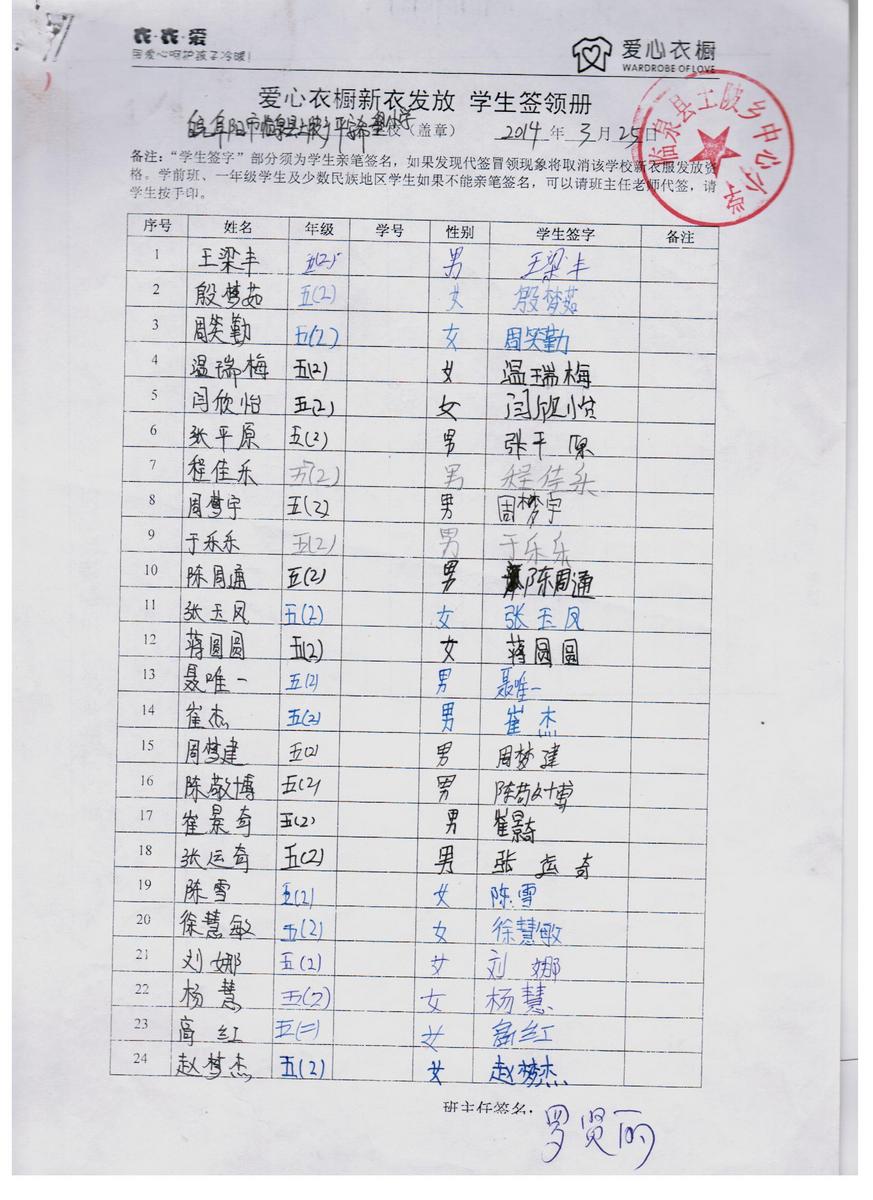 衣·衣·爱
用爱心呵护孩子冷暖!
爱心衣橱
WARDROBE OF LOVE
爱心衣橱新衣发放 学生签领册
皖阜阳市临泉县土陂乡平 希望小学校（盖章） 2014 年 3 月 25 日
临泉县土陂乡中心小学
备注：“学生签字”部分须为学生亲笔签名，如果发现代签冒领现象将取消该学校新衣服发放资
格。学前班、一年级学生及少数民族地区学生如果不能亲笔签名，可以请班主任老师代签，请
学生按手印。
序号 姓名 年级 学号 性别 学生签字 备注
1 王梁丰 五(2) 男 王梁丰
2 殷梦茹 五(2) 女 殷梦茹
3 周笑勤 五(2) 女 周笑勤
4 温瑞梅 五(2) 女 温瑞梅
5 闫欣怡 五(2) 女 闫欣怡
6 张平原 五(2) 男 张平原
7 程佳乐 五(2) 男 程佳乐
8 周梦宇 五(2) 男 周梦宇
9 于乐乐 五(2) 男 于乐乐
10 陈周通 五(2) 男 陈周通
11 张玉凤 五(2) 女 张玉凤
12 蒋圆圆 五(2) 女 蒋圆圆
13 聂唯一 五(2) 男 聂唯一
14 崔杰 五(2) 男 崔杰
15 周梦建 五(2) 男 周梦建
16 陈敬博 五(2) 男 陈敬博
17 崔景奇 五(2) 男 崔景奇
18 张运奇 五(2) 男 张运奇
19 陈雪 五(2) 女 陈雪
20 徐慧敏 五(2) 女 徐慧敏
21 刘娜 五(2) 女 刘娜
22 杨慧 五(2) 女 杨慧
23 高红 五(二) 女 高红
24 赵梦杰 五(2) 女 赵梦杰
班主任签名: 罗贤丽